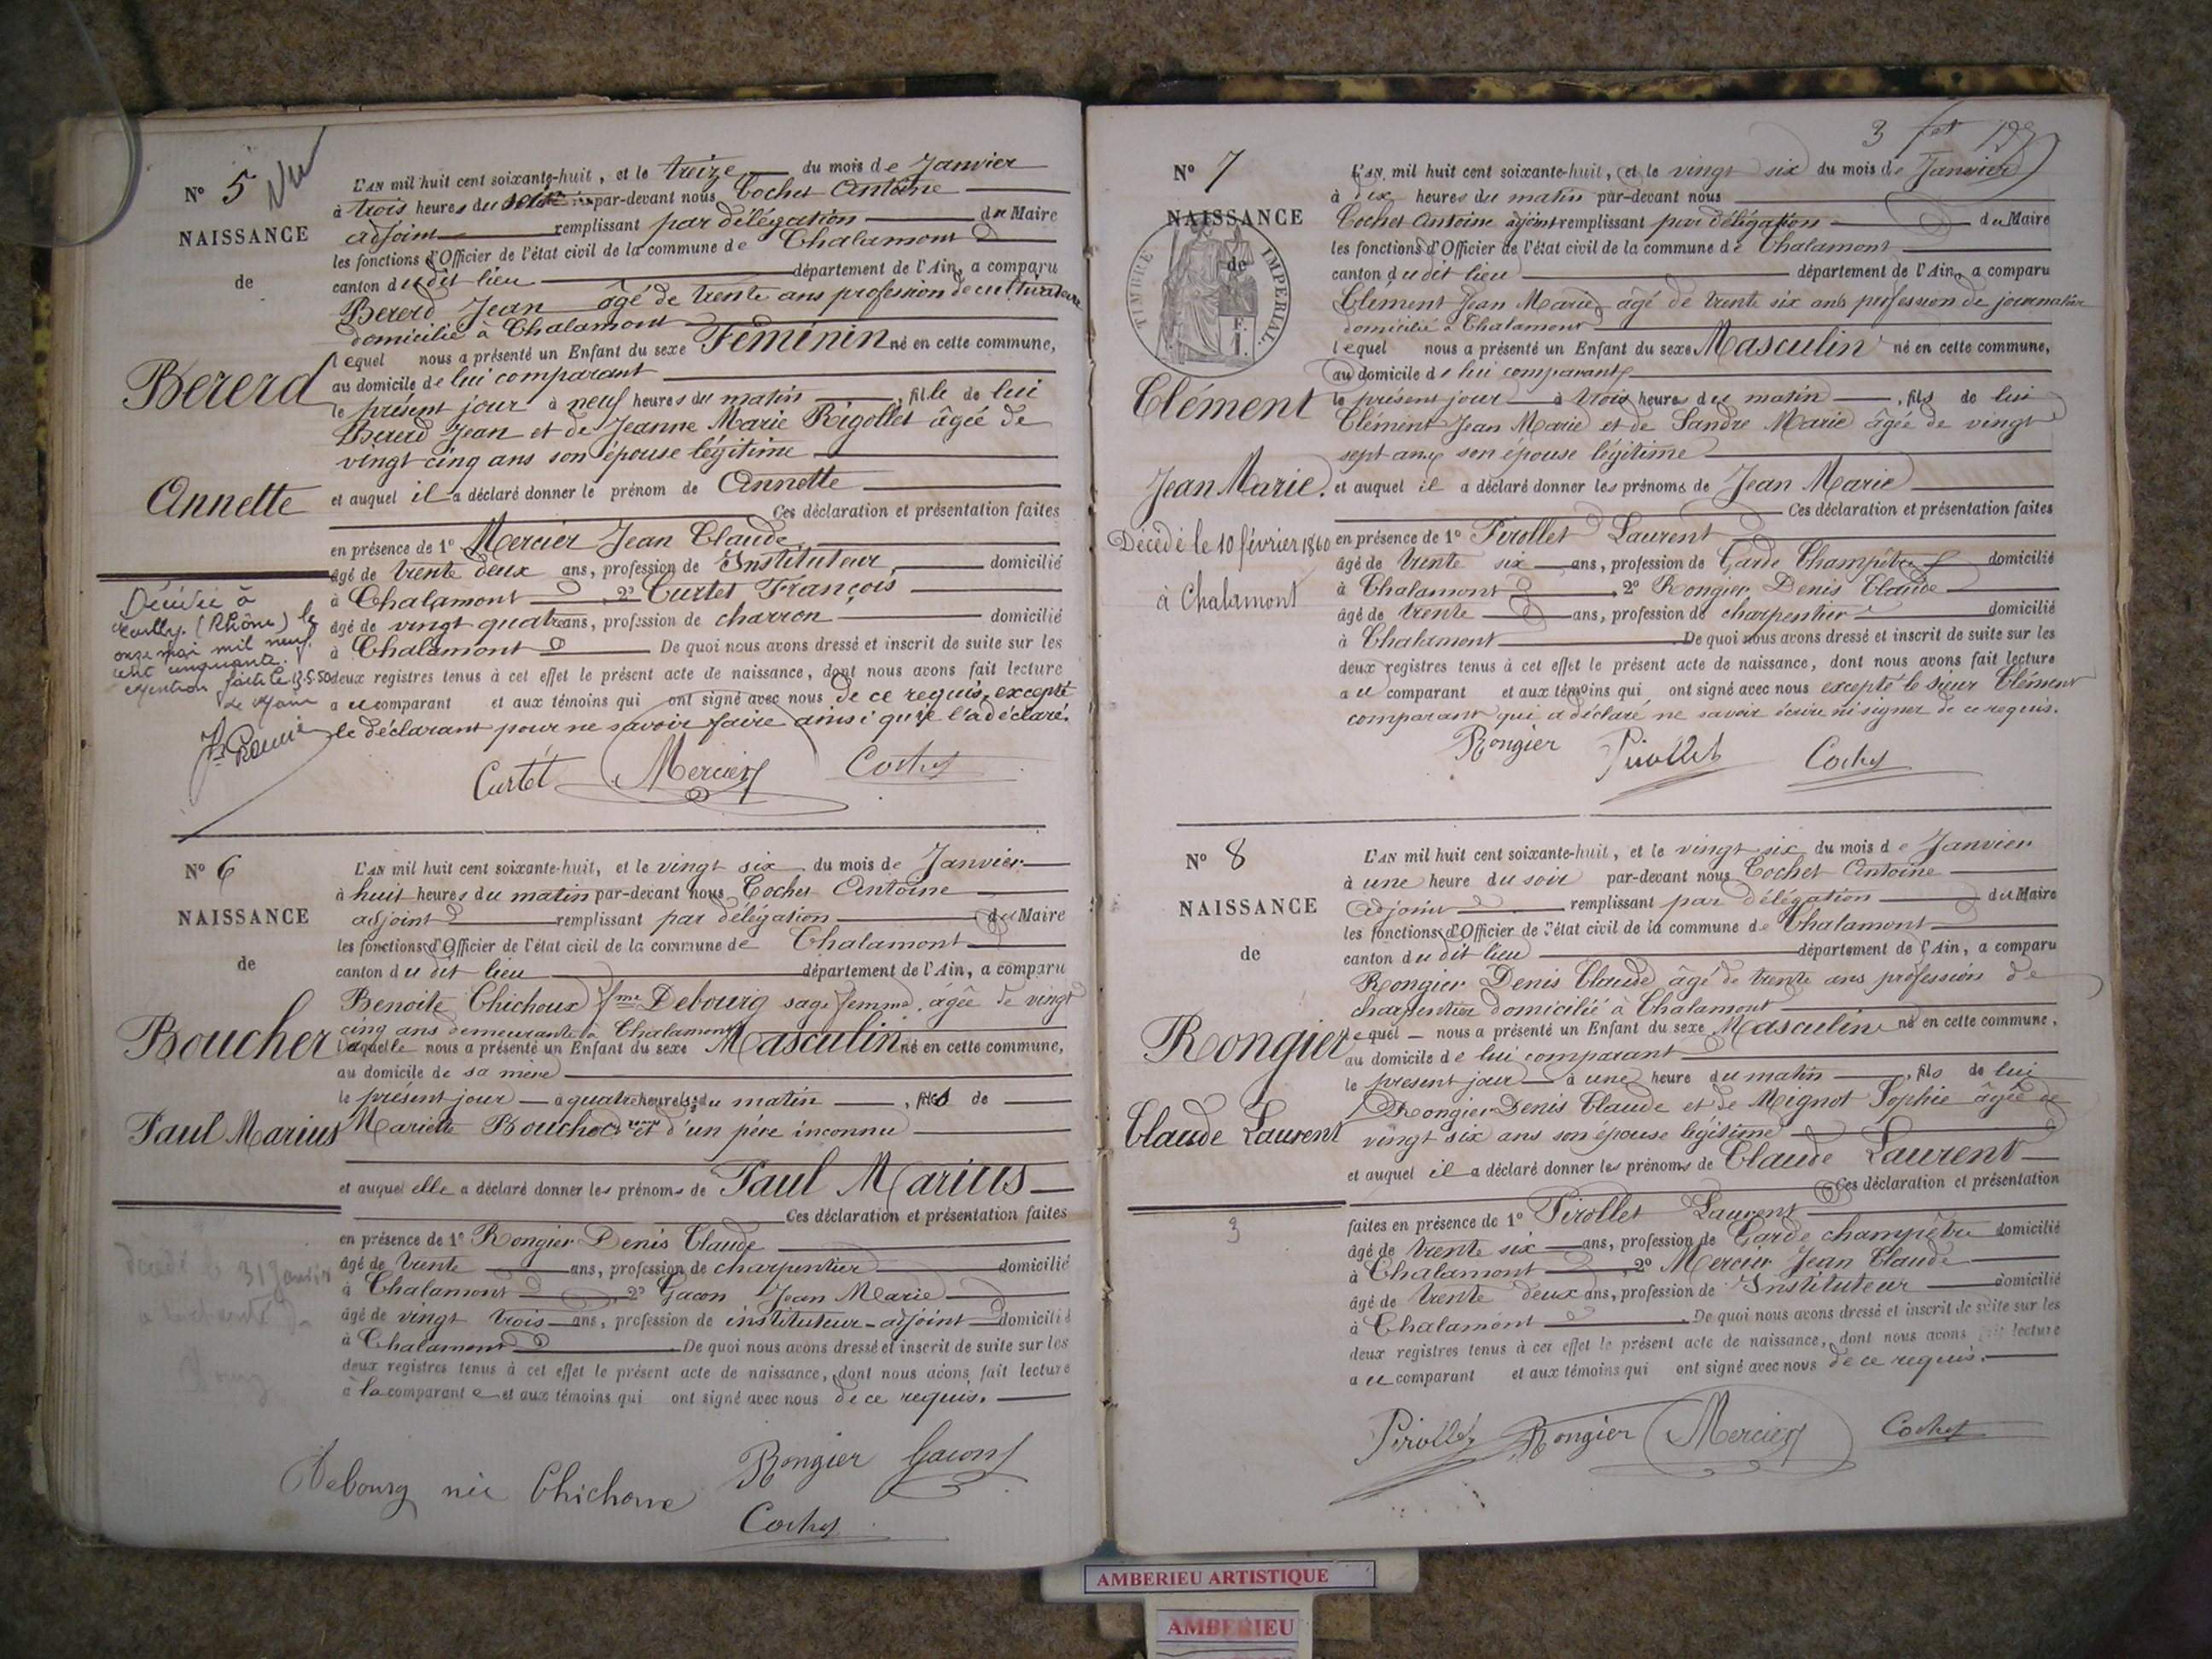 N° 5 Vu
NAISSANCE
de
Bererd
Annette
Décédée à
(Rhône) le
onze mai mil neuf
cent cinquante.
Mention faite le 13-5-50
L'AN mil huit cent soixante-huit, et le treize du mois de Janvier
à trois heures du soir par-devant nous Cochet Antoine
adjoint remplissant par délégation du Maire
les fonctions d'Officier de l'état civil de la commune de Chalamont
canton du dit lieu département de l'Ain, a comparu
Bererd Jean âgé de trente ans profession de cultivateur
domicilié à Chalamont
lequel nous a présenté un Enfant du sexe Féminin né en cette commune,
au domicile de lui comparant
le présent jour à neuf heures du matin, fille de lui
Bererd Jean et de Jeanne Marie Rigollet âgée de
vingt cinq ans son épouse légitime
et auquel il a déclaré donner le prénom de Annette
Ces déclaration et présentation faites
en présence de 1° Mercier Jean Claude
âgé de trente deux ans, profession de Instituteur, domicilié
à Chalamont, 2° Curtet François
âgé de vingt quatre ans, profession de charron domicilié
à Chalamont De quoi nous avons dressé et inscrit de suite sur les
deux registres tenus à cet effet le présent acte de naissance, dont nous avons fait lecture
au comparant et aux témoins qui ont signé avec nous de ce requis, excepté
le déclarant pour ne savoir faire ainsi qu'il l'a déclaré.
Curtet Mercier Cochet
N° 6
NAISSANCE
de
Boucher
Paul Marius
31 Janvier
L'AN mil huit cent soixante-huit, et le vingt six du mois de Janvier
à huit heures du matin par-devant nous Cochet Antoine
adjoint remplissant par délégation du Maire
les fonctions d'Officier de l'état civil de la commune de Chalamont
canton du dit lieu département de l'Ain, a comparu
Benoite Chichoux fme Debourg sage femme, âgée de vingt
cinq ans demeurante à Chalamont
laquelle nous a présenté un Enfant du sexe Masculin né en cette commune,
au domicile de sa mère
le présent jour à quatre heures du matin, fils de
Mariette Boucher et d'un père inconnu
et auquel elle a déclaré donner les prénoms de Paul Marius
Ces déclaration et présentation faites
en présence de 1° Rongier Denis Claude
âgé de trente ans, profession de charpentier domicilié
à Chalamont, 2° Gacon Jean Marie
âgé de vingt trois ans, profession de instituteur-adjoint domicilié
à Chalamont De quoi nous avons dressé et inscrit de suite sur les
deux registres tenus à cet effet le présent acte de naissance, dont nous avons fait lecture
à la comparante et aux témoins qui ont signé avec nous de ce requis.
Rongier Gacon
Debourg née Chichoux
Cochet
3
N° 7
NAISSANCE
de
TIMBRE IMPERIAL
Clément
Jean Marie.
Décédé le 10 février 1860
à Chalamont
L'AN mil huit cent soixante-huit, et le vingt six du mois de Janvier
à dix heures du matin par-devant nous
Cochet Antoine adjoint remplissant par délégation du Maire
les fonctions d'Officier de l'état civil de la commune de Chalamont
canton du dit lieu département de l'Ain, a comparu
Clément Jean Marie, âgé de trente six ans profession de journalier
domicilié à Chalamont
lequel nous a présenté un Enfant du sexe Masculin né en cette commune,
au domicile de lui comparant
le présent jour à trois heures du matin, fils de lui
Clément Jean Marie et de Sandre Marie âgée de vingt
sept ans son épouse légitime
et auquel il a déclaré donner les prénoms de Jean Marie
Ces déclaration et présentation faites
en présence de 1° Pirollet Laurent
âgé de trente six ans, profession de Garde Champêtre domicilié
à Chalamont, 2° Rongier Denis Claude
âgé de trente ans, profession de charpentier domicilié
à Chalamont De quoi nous avons dressé et inscrit de suite sur les
deux registres tenus à cet effet le présent acte de naissance, dont nous avons fait lecture
au comparant et aux témoins qui ont signé avec nous excepté le sieur Clément
comparant qui a déclaré ne savoir écrire ni signer de ce requis.
Rongier Pirollet Cochet
N° 8
NAISSANCE
de
Rongier
Claude Laurent
3
L'AN mil huit cent soixante-huit, et le vingt six du mois de Janvier
à une heure du soir par-devant nous Cochet Antoine
Adjoint remplissant par délégation du Maire
les fonctions d'Officier de l'état civil de la commune de Chalamont
canton du dit lieu département de l'Ain, a comparu
Rongier Denis Claude âgé de trente ans profession de
charpentier domicilié à Chalamont
lequel nous a présenté un Enfant du sexe Masculin né en cette commune,
au domicile de lui comparant
le présent jour à une heure du matin, fils de lui
Rongier Denis Claude et de Mignot Sophie âgée de
vingt six ans son épouse légitime
et auquel il a déclaré donner les prénoms de Claude Laurent
Ces déclaration et présentation
faites en présence de 1° Pirollet Laurent
âgé de trente six ans, profession de Garde champêtre domicilié
à Chalamont, 2° Mercier Jean Claude
âgé de trente deux ans, profession de Instituteur domicilié
à Chalamont De quoi nous avons dressé et inscrit de suite sur les
deux registres tenus à cet effet le présent acte de naissance, dont nous avons fait lecture
au comparant et aux témoins qui ont signé avec nous de ce requis.
Pirollet Rongier Mercier Cochet
AMBERIEU ARTISTIQUE
AMBERIEU